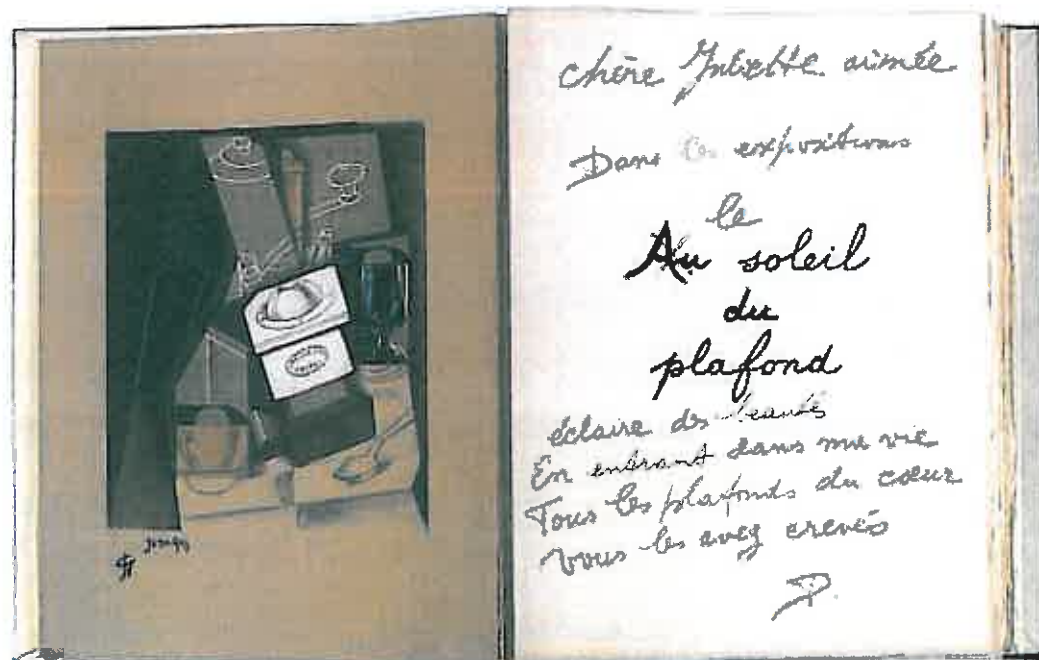 chère Juliette aimée
Dans les expositions
le
Au soleil
du
plafond
éclaire des beautés
En entrant dans ma vie
Tous les plafonds du cœur
vous les avez crevés
P.